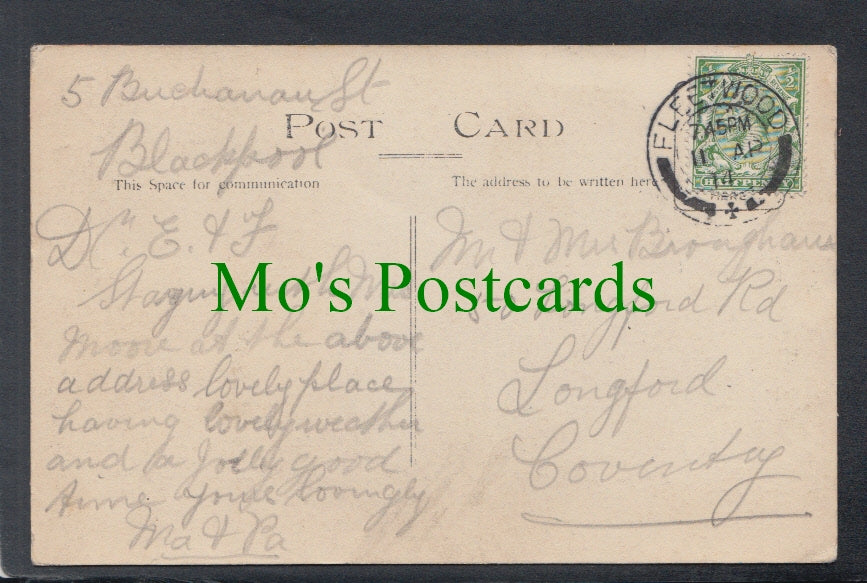 5 Buchanan St
Blackpool
POST CARD
This Space for communication
The address to be written here
FLEETWOOD
7.45PM
11 AP
14
HALFPENNY
Dr. E. & F
Staying with Mrs
Moore at the above
address lovely place
having lovely weather
and a Jolly good
time yours lovingly
Ma & Pa
Mr & Mrs Brougham
50 Longford Rd
Longford
Coventry
Mo's Postcards